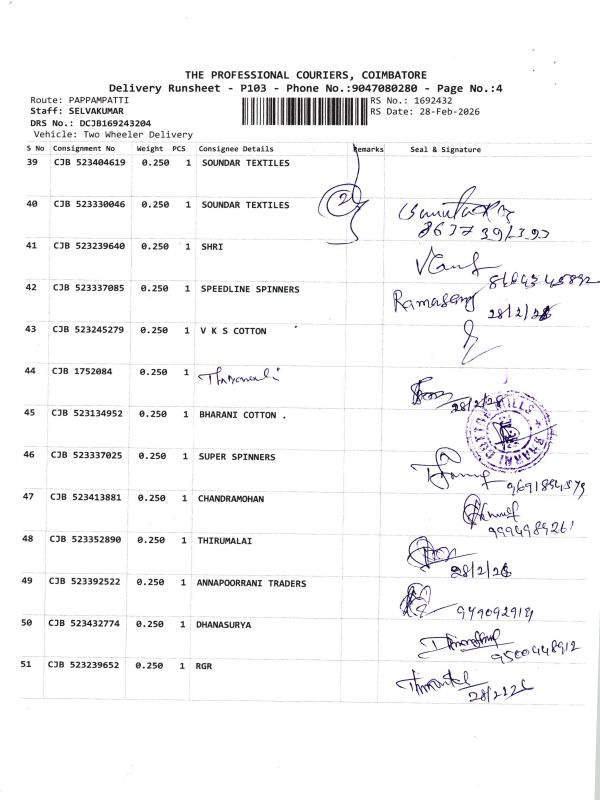 THE PROFESSIONAL COURIERS, COIMBATORE
Delivery Runsheet - P103 - Phone No.:9047080280 - Page No.:4
Route: PAPPAMPATTI RS No.: 1692432
Staff: SELVAKUMAR RS Date: 28-Feb-2026
DRS No.: DCJB169243204
Vehicle: Two Wheeler Delivery
S No Consignment No Weight PCS Consignee Details Remarks Seal & Signature
39 CJB 523404619 0.250 1 SOUNDAR TEXTILES
40 CJB 523330046 0.250 1 SOUNDAR TEXTILES 2
41 CJB 523239640 0.250 1 SHRI
42 CJB 523337085 0.250 1 SPEEDLINE SPINNERS Ramasamy 28/2/26
43 CJB 523245279 0.250 1 V K S COTTON
44 CJB 1752084 0.250 1 28/2/26
45 CJB 523134952 0.250 1 BHARANI COTTON . BHARANI COTTON MILLS
46 CJB 523337025 0.250 1 SUPER SPINNERS
47 CJB 523413881 0.250 1 CHANDRAMOHAN 9994989261
48 CJB 523352890 0.250 1 THIRUMALAI 28/2/26
49 CJB 523392522 0.250 1 ANNAPOORRANI TRADERS
50 CJB 523432774 0.250 1 DHANASURYA 9500448912
51 CJB 523239652 0.250 1 RGR 28/2/26